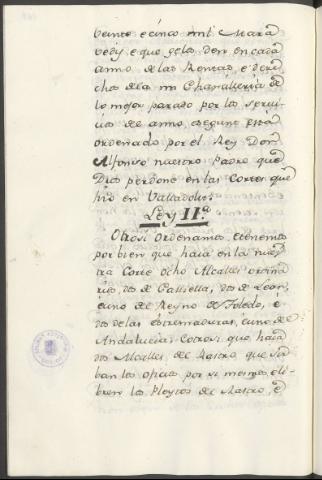 veinte é cinco mil Mara
vedis, e que gelos den en cada
anno de las Rentas, e dere
chos de la mi Chancilleria de
lo mejor parado por los servi
cios de anno, e segunt está
ordenado por el Rey Don
Alfonso nuestro Padre que
Dios perdone en las Cortes que
hizo en Valladolid.
Ley II.ª
Otrosi Ordenamos, e tenemos
por bien que haia en la nues
tra Corte ocho Alcalles ordina
rios, dos de Castiella, dos de Leon,
e uno del Reyno de Toledo, é
dos de las estremaduras, e uno de
Andalucia: e otrosi, que haia
dos Alcalles del Rastro, que sir
ban los oficios por si mesmos, é li
bren los Pleytos del Rastro, é